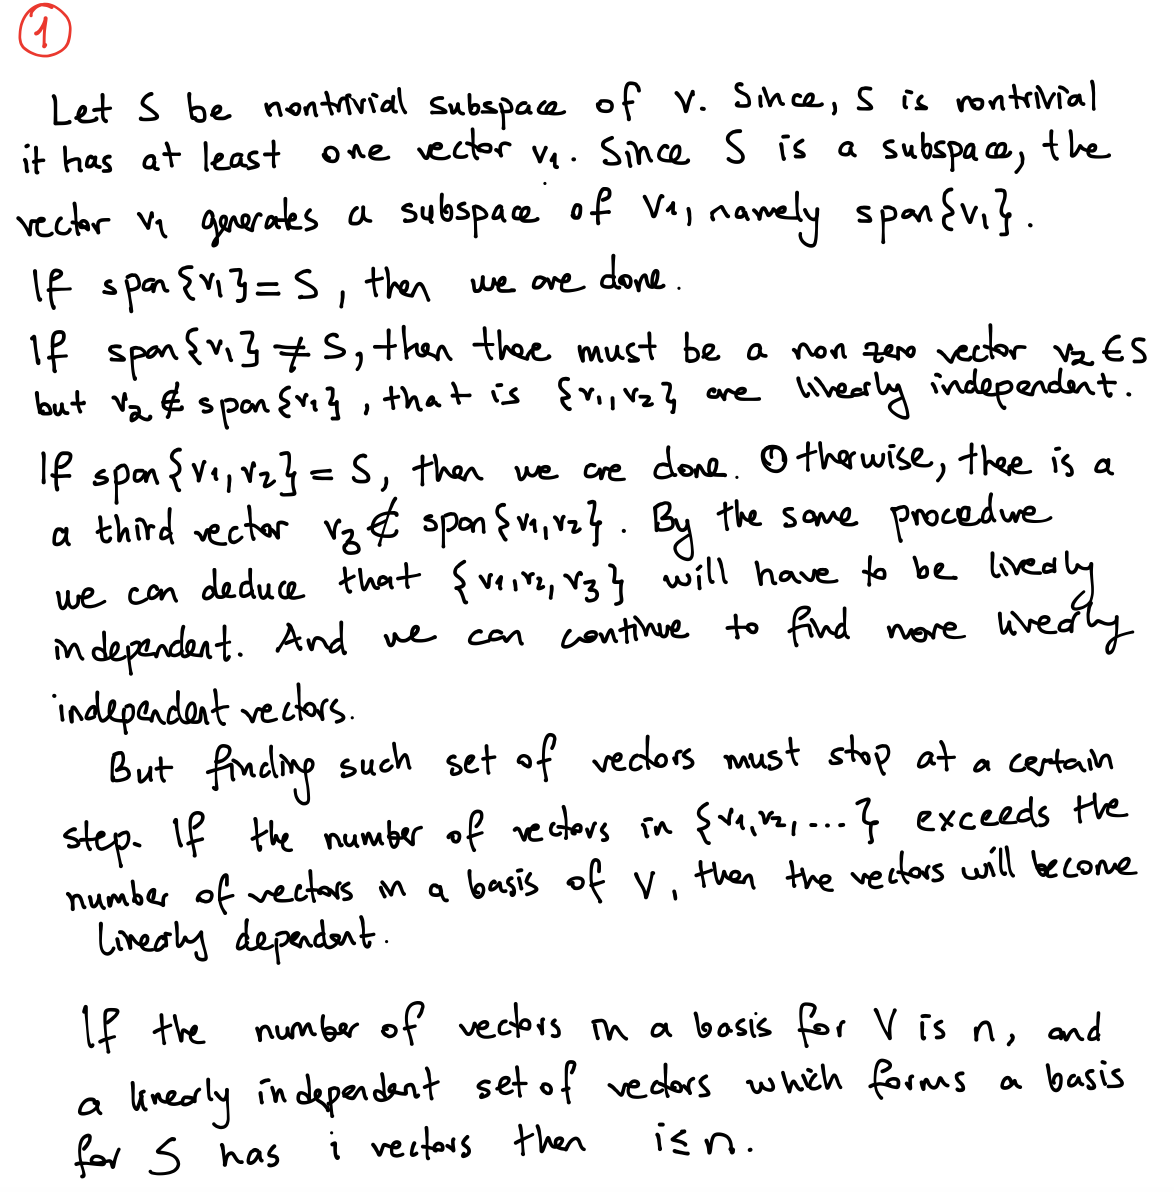 1
Let S be nontrivial subspace of V. Since, S is nontrivial
it has at least one vector v₁. Since S is a subspace, the
vector v₁ generates a subspace of V₁, namely span{v₁}.
If span{v₁} = S, then we are done.
If span{v₁} ≠ S, then there must be a non zero vector v₂ ∈ S
but v₂ ∉ span{v₁}, that is {v₁, v₂} are linearly independent.
If span{v₁, v₂} = S, then we are done. Otherwise, there is a
a third vector v₃ ∉ span{v₁, v₂}. By the same procedure
we can deduce that {v₁, v₂, v₃} will have to be linearly
independent. And we can continue to find more linearly
independent vectors.
But finding such set of vectors must stop at a certain
step. If the number of vectors in {v₁, v₂, ...} exceeds the
number of vectors in a basis of V, then the vectors will become
linearly dependent.
If the number of vectors in a basis for V is n, and
a linearly independent set of vectors which forms a basis
for S has i vectors then i ≤ n.